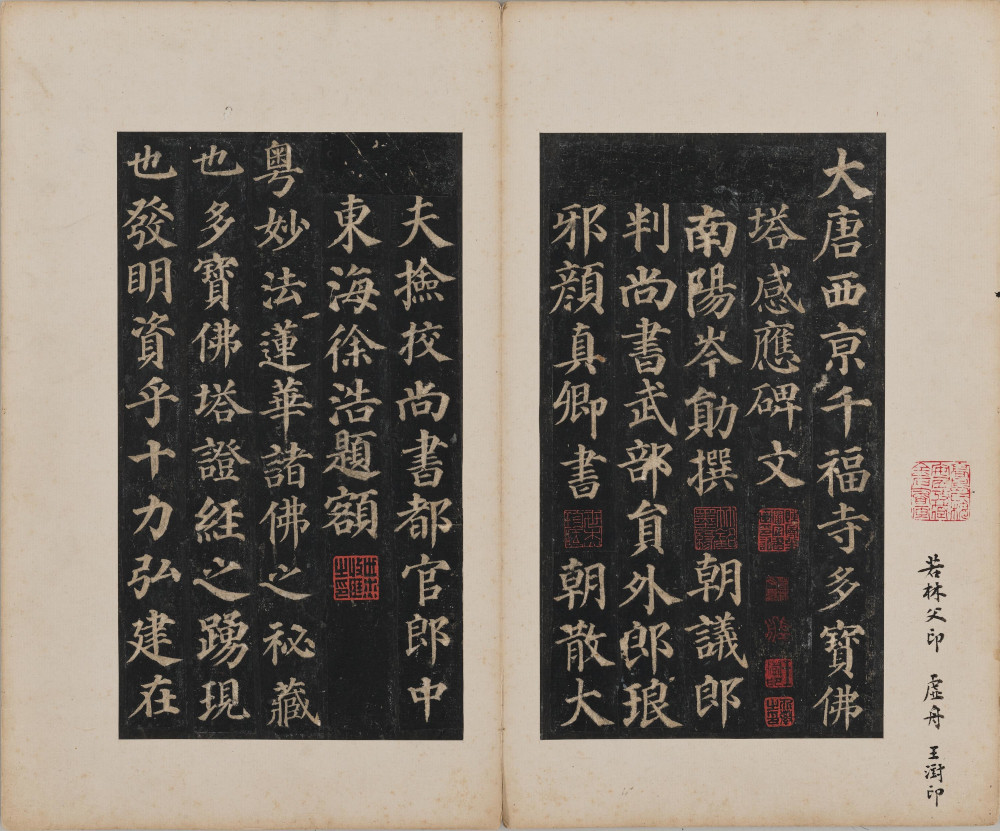 大唐西京千福寺多寶佛
塔感應碑文
南陽岑勛撰 朝議郎
判尚書武部貟外郎琅
邪顔真卿書 朝散大
夫撿挍尚書都官郎中
東海徐浩題額
粤妙法蓮華諸佛之祕藏
也多寶佛塔證經之踴現
也發明資乎十力弘建在
若林父印 虛舟 王澍印